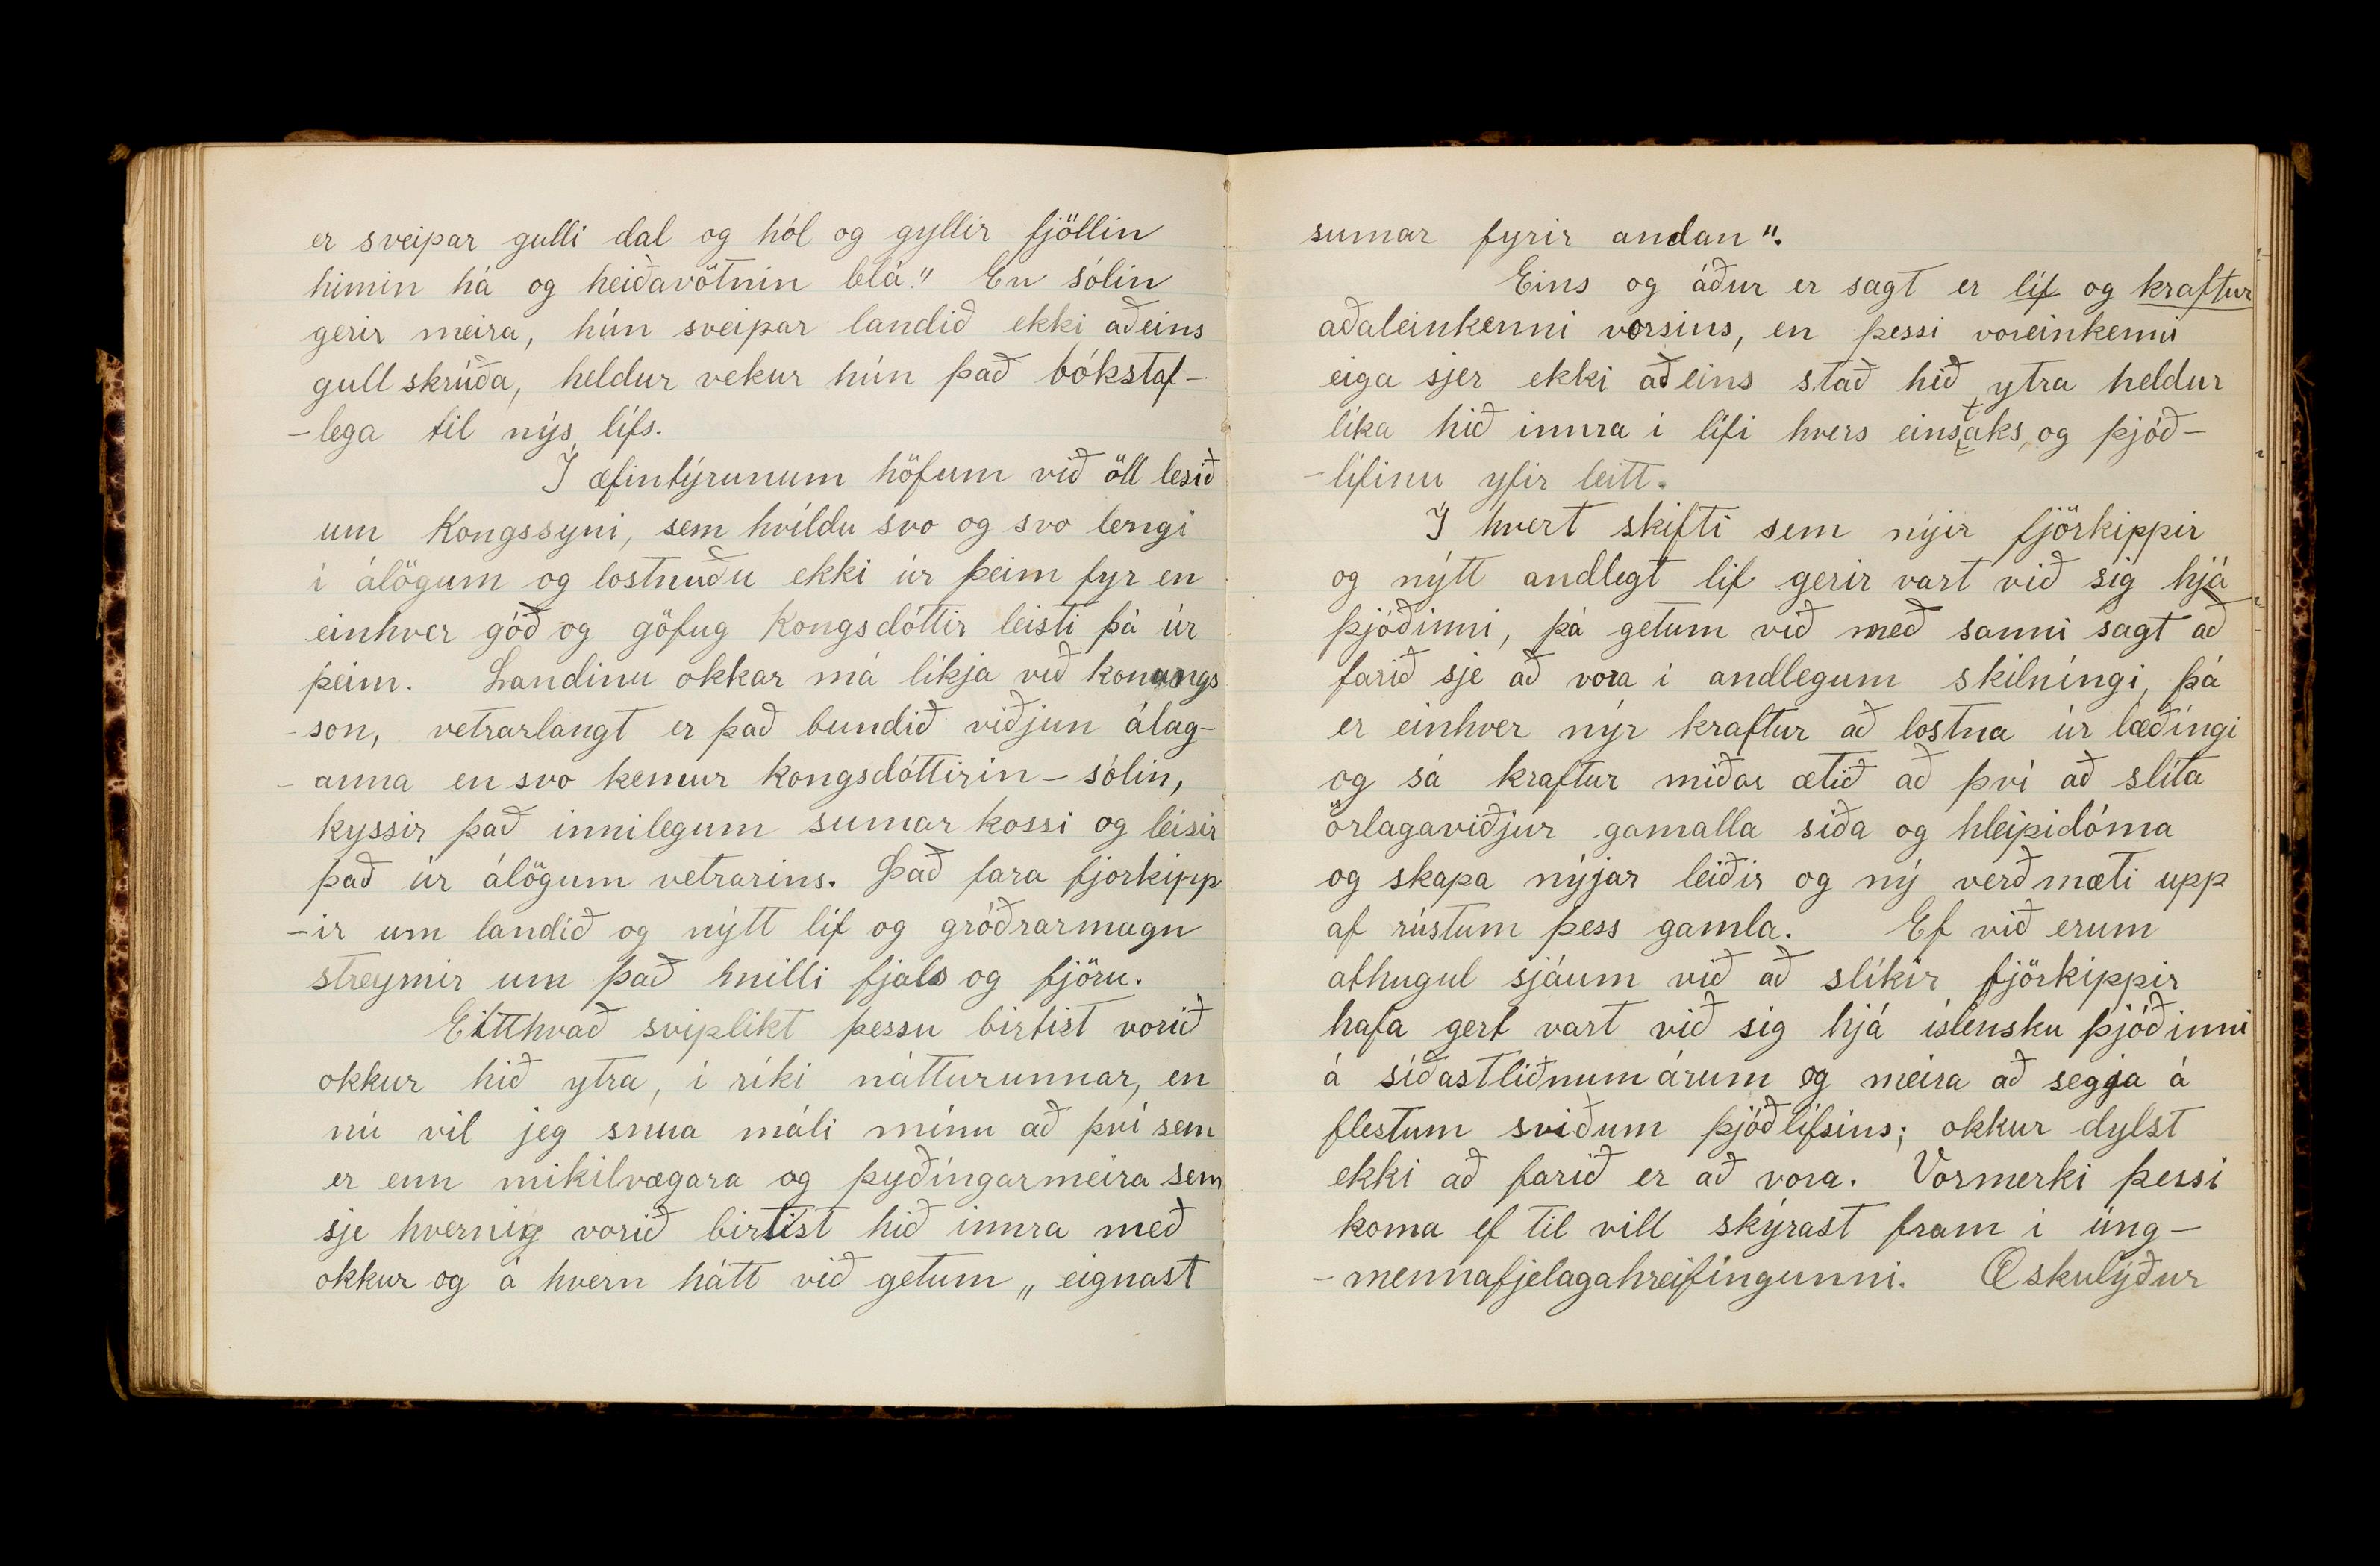 er sveipar gulli dal og hól og gyllir fjöllin
himin há og heiðavötnin blá." En sólin
gerir meira, hún sveipar landið ekki aðeins
gull skrúða, heldur vekur hún það bókstaf-
-lega til nýs lífs.
Í æfintýrunum höfum við öll lesið
um Kongssyni, sem hvíldu svo og svo lengi
í álögum og lostnuðu ekki úr þeim fyr en
einhver góð og göfug Kongsdóttir leisti þá úr
þeim. Landinu okkar má líkja við konungs
-son, vetrarlangt er það bundið viðjun álag-
-anna en svo kemur kongsdóttirin - sólin,
kyssir það innilegum sumar kossi og leisir
það úr álögum vetrarins. Það fara fjorkipp
-ir um landið og nýtt líf og gróðrarmagn
streymir um það milli fjals og fjöru.
Eitthvað sviplikt þessu birtist vorið
okkur hið ytra, í ríki nátturunnar, en
nú vil jeg snua máli mínu að því sem
er enn mikilvægara og þyðíngarmeira sem
sje hvernig vorið birtist hið innra með
okkur og á hvern hátt við getum „eignast
sumar fyrir andan".
Eins og áður er sagt er líf og kraftur
aðaleinkenni vorsins, en þessi voreinkenni
eiga sjer ekki aðeins stað hið ytra heldur
líka hið innra í lífi hvers einstaks, og þjóð-
-lífinu yfir leitt.
Í hvert skifti sem nýir fjörkippir
og nýtt andlegt líf gerir vart við sig hjá
þjóðinni, þá getum við með sanni sagt að
farið sje að vora í andlegum skilníngi, þá
er einhver nýr kraftur að lostna úr læðíngi
og sá kraftur miðar ætið að því að slíta
örlagaviðjur gamalla siða og hleipidóma
og skapa nýjar leiðir og ný verðmæti upp
af rústum þess gamla. Ef við erum
athugul sjáum við að slíkir fjörkippir
hafa gert vart við sig hjá íslensku þjóðinni
á síðastliðnum árum og meira að segja á
flestum sviðum þjóðlífsins; okkur dylst
ekki að farið er að vora. Vormerki þessi
koma ef til vill skýrast fram í úng-
-mennafjelagahreifíngunni. Æskulýður